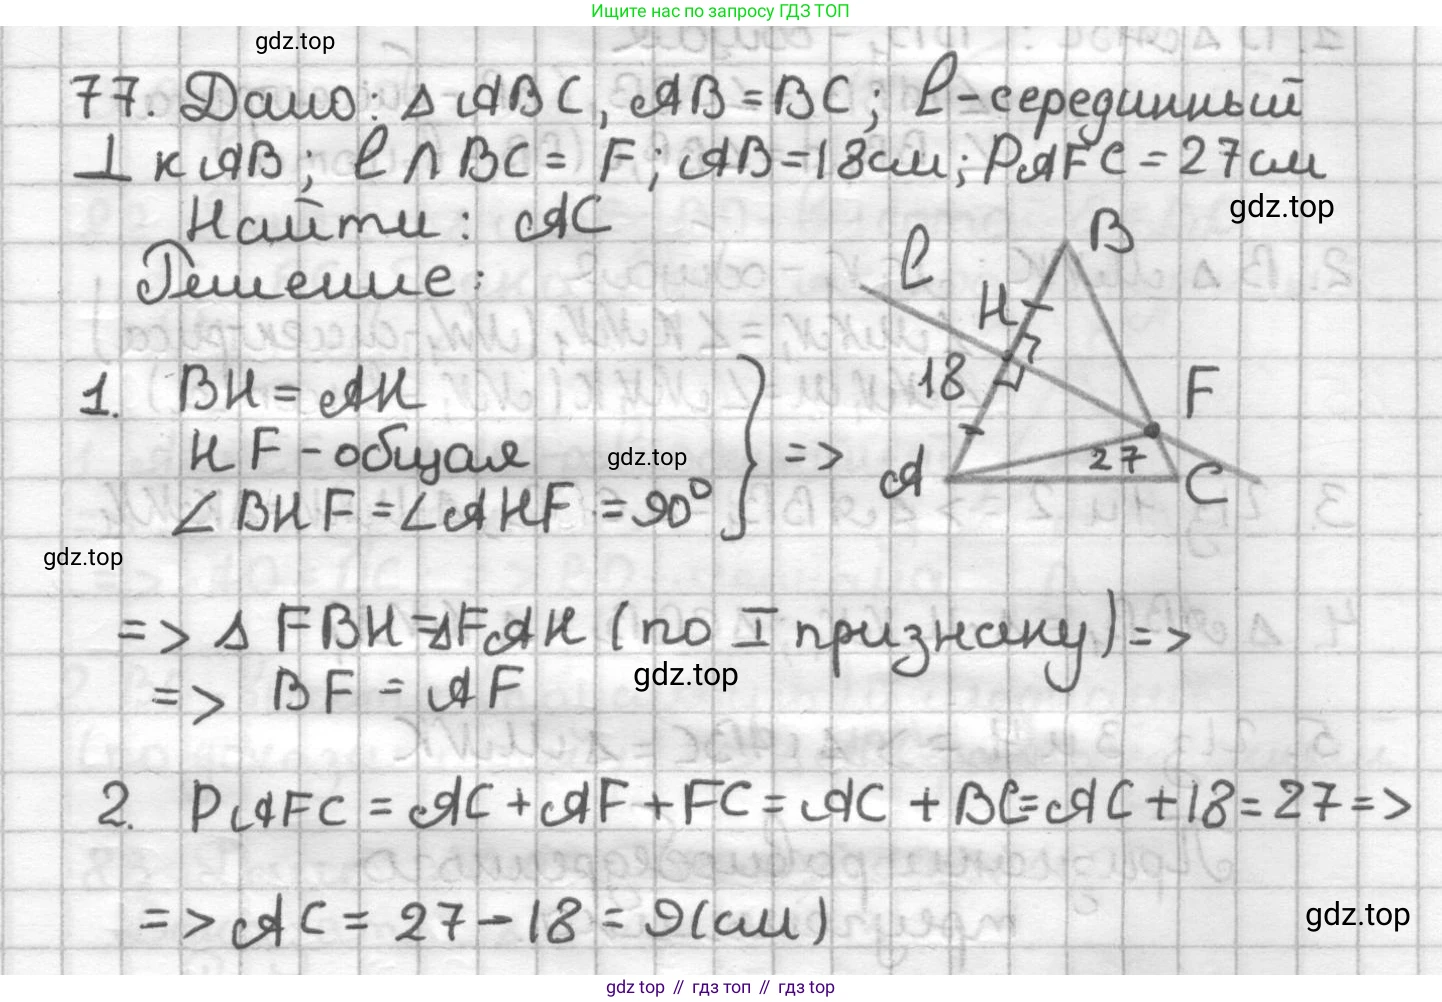 Ищите нас по запросу ГДЗ ТОП
gdz.top
77. Дано: Δ ABC, AB = BC; l - серединный
⊥ к AB; l ∩ BC = F; AB = 18 см; PAFC = 27 см
gdz.top
Найти: AC
Решение:
B
l
H
18
F
A
27
C
1. BH = AH
HF - общая
gdz.top
=>
∠ BHF = ∠AHF = 90°
gdz.top
=> Δ FBH = ΔFAH (по I признаку) =>
gdz.top
=> BF = AF
2. PAFC = AC + AF + FC = AC + BC = AC + 18 = 27 =>
=> AC = 27 - 18 = 9 (см)
gdz.top
gdz top // гдз топ // гдз top